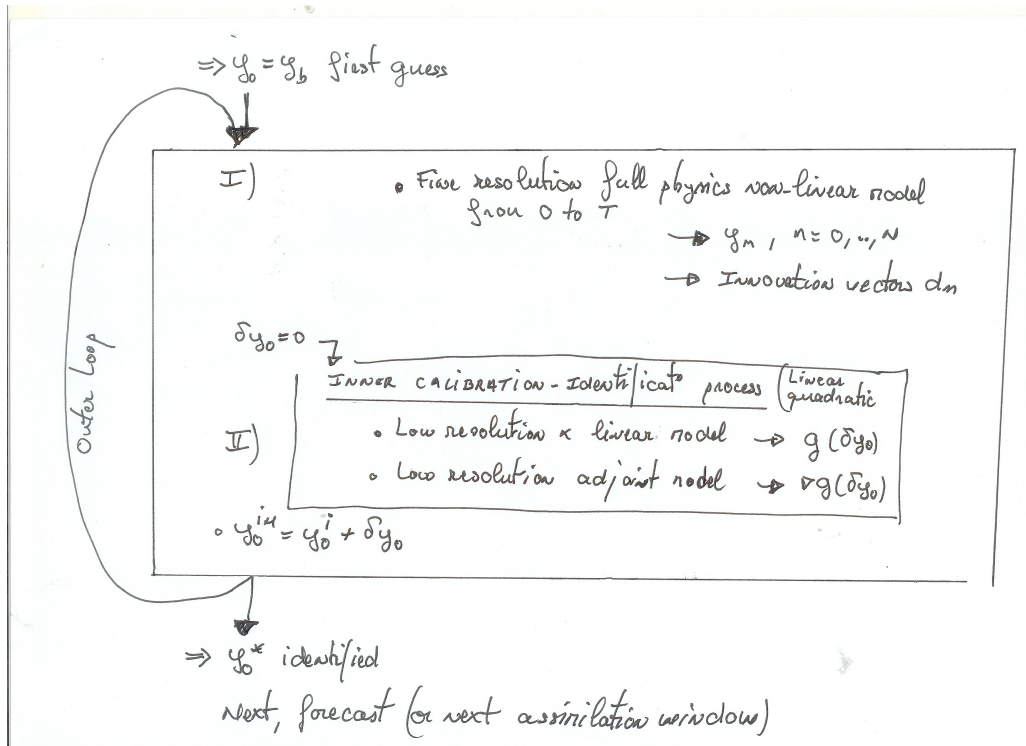 ⇒ y₀ = y_b first guess
I)
• Fine resolution full physics non-linear model
from 0 to T
→ yₙ, n = 0, .., N
→ Innovation vectors dₙ
δy₀ = 0
INNER CALIBRATION-Identificatº process (Linear
quadratic
Outer Loop
II)
• Low resolution & linear model → g(δy₀)
• Low resolution adjoint model → ∇g(δy₀)
• y₀ⁱ⁺¹ = y₀ⁱ + δy₀
⇒ y₀* identified
Next, forecast (or next assimilation window)